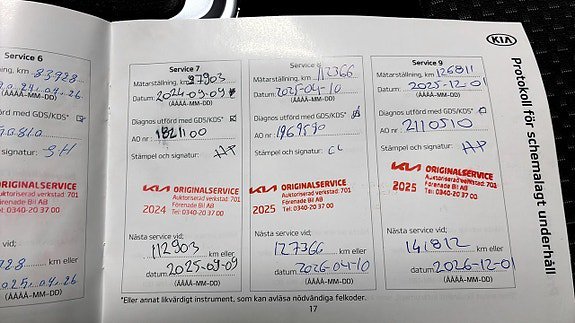 Service 6
km 83928
(ÅÅÅÅ-MM-DD)
med GDS/KDS*
signatur: SH
ORIGINALSERVICE
Auktoriserad verkstad: 701
Förenade Bil AB
Tel: 0340-20 37 00
km eller
(ÅÅÅÅ-MM-DD)
Service 7
Mätarställning, km 97903
Datum: 2024-09-9
(ÅÅÅÅ-MM-DD)
Diagnos utförd med GDS/KDS*
AO nr: 1821100
Stämpel och signatur: HP
KIA ORIGINALSERVICE
Auktoriserad verkstad: 701
Förenade Bil AB
2024 Tel: 0340-20 37 00
Nästa service vid:
112903 km eller
datum 2025-09-09
(ÅÅÅÅ-MM-DD)
Service 8
Mätarställning, km 112366
Datum: 2025-04-10
(ÅÅÅÅ-MM-DD)
Diagnos utförd med GDS/KDS*
AO nr: 1969590
Stämpel och signatur: CL
KIA ORIGINALSERVICE
Auktoriserad verkstad: 701
Förenade Bil AB
2025 Tel: 0340-20 37 00
Nästa service vid:
127366 km eller
datum 2026-04-10
(ÅÅÅÅ-MM-DD)
Service 9
Mätarställning, km 126811
Datum: 2025-12-01
(ÅÅÅÅ-MM-DD)
Diagnos utförd med GDS/KDS*
AO nr: 2110510
Stämpel och signatur: HP
KIA ORIGINALSERVICE
Auktoriserad verkstad: 701
2025 Förenade Bil AB
Tel: 0340-20 37 00
Nästa service vid:
141812 km eller
datum 2026-12-01
(ÅÅÅÅ-MM-DD)
*Eller annat likvärdigt instrument, som kan avläsa nödvändiga felkoder.
17
KIA
Protokoll för schemalagt underhåll